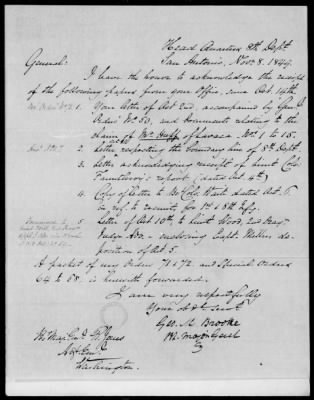 Head Quarters 8th Dept
San Antonio, Nov. 8. 1849.
General:
I have the honor to acknowledge the receipt
of the following papers from your office, since Oct. 14th
1. Your letter of Oct 2nd, accompanied by Genl
Orders No. 50, and documents relating to the
claim of Mr Huff of Lavaca Nos. 1 to 15.
2. Letter respecting the boundary line of 8th Dept.
3. Letter acknowledging receipt of Lieut Col.
report (dated Oct. 4th)
4. Copy of letter to Col. dated Oct. 5.
in ref. to recruits for 1st & 8th Infy.
5. Letter of Oct 10th to Lieut Wood,
Judge Adv. - enclosing Capt. Miller's de-
position of Oct. 5.
A packet of my Orders 71 & 72 and Special Orders
64 to 68. is herewith forwarded.
I am very respectfully
Your Obdt. Servt.
Geo. M Brooke
Bt. Major Genl
Bt. Maj. Genl. R. Jones
Adjt. Genl.
Washington.